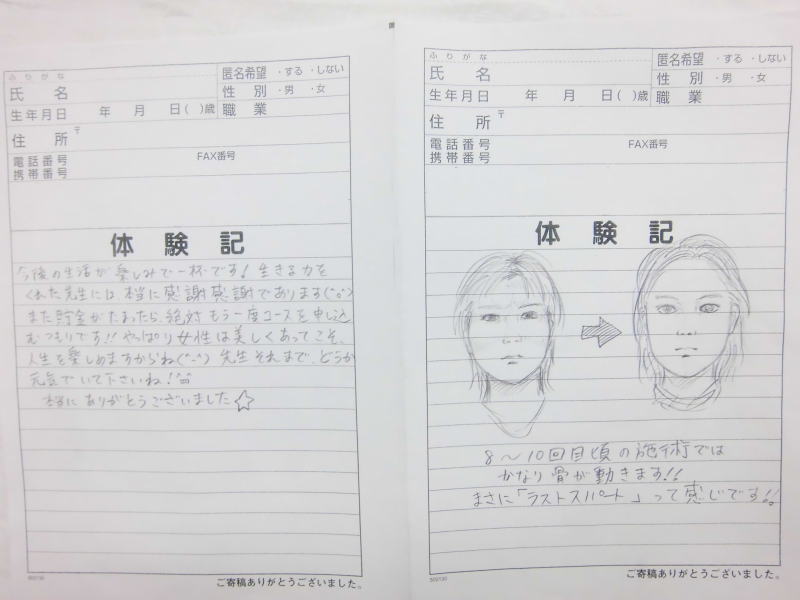 ふりがな
氏 名
匿名希望 ・する ・しない
性 別 ・男 ・女
生年月日 年 月 日( )歳
職 業
住 所 〒
電話番号
携帯番号
FAX番号
体 験 記
今後の生活が楽しみで一杯です!生きる力を
くれた先生には、本当に感謝感謝であります(^o^)
また貯金がたまったら、絶対もう一度コースを申し込
むつもりです!!やっぱり女性は美しくあってこそ、
人生を楽しめますからね(^-^) 先生それまで、どうか
元気でいて下さいね!^^
本当にありがとうございました☆
ご寄稿ありがとうございました。
ふりがな
氏 名
匿名希望 ・する ・しない
性 別 ・男 ・女
生年月日 年 月 日( )歳
職 業
住 所 〒
電話番号
携帯番号
FAX番号
体 験 記
8〜10回目頃の施術では
かなり骨が動きます!!
まさに「ラストスパート」って感じです!!
ご寄稿ありがとうございました。